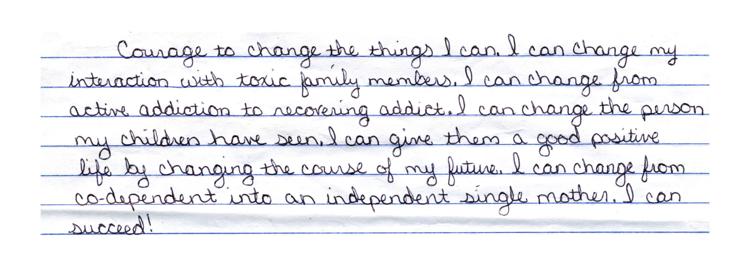 Courage to change the things I can. I can change my
interaction with toxic family members. I can change from
active addiction to recovering addict. I can change the person
my children have seen. I can give them a good positive
life by changing the course of my future. I can change from
co-dependent into an independent single mother. I can
succeed!